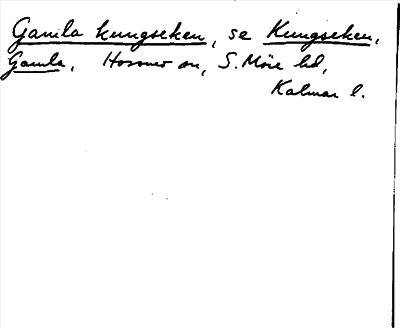 Gamla kungseken, se Kungseken,
Gamla, Hossmo sn, S. Möre hd,
Kalmar l.